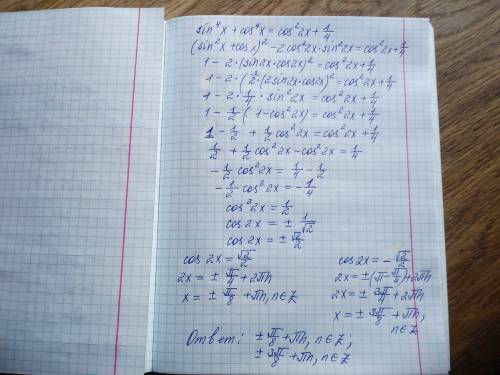 sin⁴x + cos⁴x = cos²2x + 1/4
(sin²x + cos²x)² - 2cos²2x·sin²2x = cos²2x + 1/4
1 - 2·(sin2x·cos2x)² = cos²2x + 1/4
1 - 2·(1/2·(2sin2x·cos2x)² = cos²2x + 1/4
1 - 2·1/4·sin²2x = cos²2x + 1/4
1 - 1/2(1 - cos²2x) = cos²2x + 1/4
1 - 1/2 + 1/2cos²2x = cos²2x + 1/4
1/2 + 1/2cos²2x - cos²2x = 1/4
-1/2cos²2x = 1/4 - 1/2
-1/2cos²2x = -1/4
cos²2x = 1/2
cos2x = ± 1/√2
cos2x = ± √2/2
cos2x = √2/2 cos2x = -√2/2
2x = ± π/4 + 2πn 2x = ±(π - π/4) + 2πn
x = ± π/8 + πn, n∈Z 2x = ± 3π/4 + 2πn
x = ± 3π/8 + πn,
n∈Z
Ответ: ± π/8 + πn, n∈Z;
± 3π/8 + πn, n∈Z